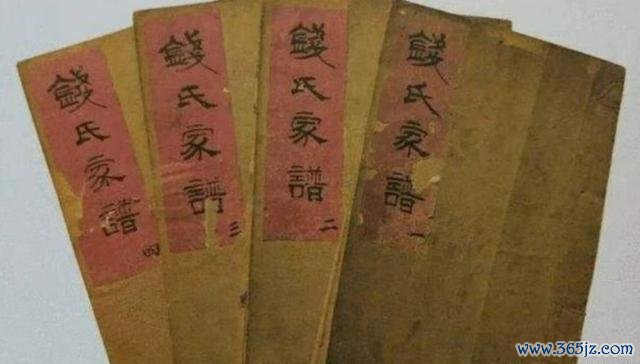 錢氏家譜 四
錢氏家譜 三
錢氏家譜 二
錢氏家譜 一
www.365jz.com